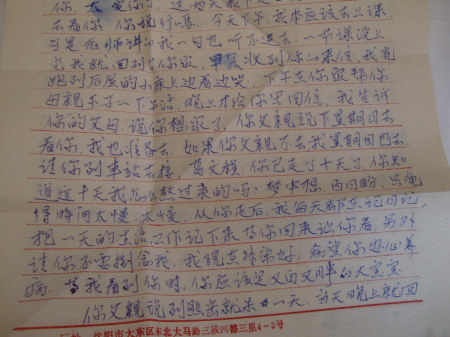 你,太爱你了,这两天我
去看你,你接信吗,今天下午,我本应该去上课
可是老师讲的我一句也听不进去,一节课没上
完我就回到你家,收到你的来信,我高
跑到后屋的小床上边看边笑,下午在你家帮你
母亲干了一下午活,晚上才给你写回信,我告诉
你的父母,说你想家了,你父亲说下星期日去
看你,我也准备去,如果你父亲不去我星期日也去
请你到车站去接,你已走了十天了,你知
道这十天我怎么熬过来的吗?梦中想,白日盼,只觉
得时间太慢,太慢,从你走后,我每天都在记日记,
把一天的生活工作记下来等你回来让你看,另外
请你不要挂念我,我现在非常好,希望你安心养
病,当我看到你时,你应该是又白又胖的大宝宝
你父亲说到熊岳就一天,当天晚上就回
沈阳市大东区东北大马路三段河德三里4-5号